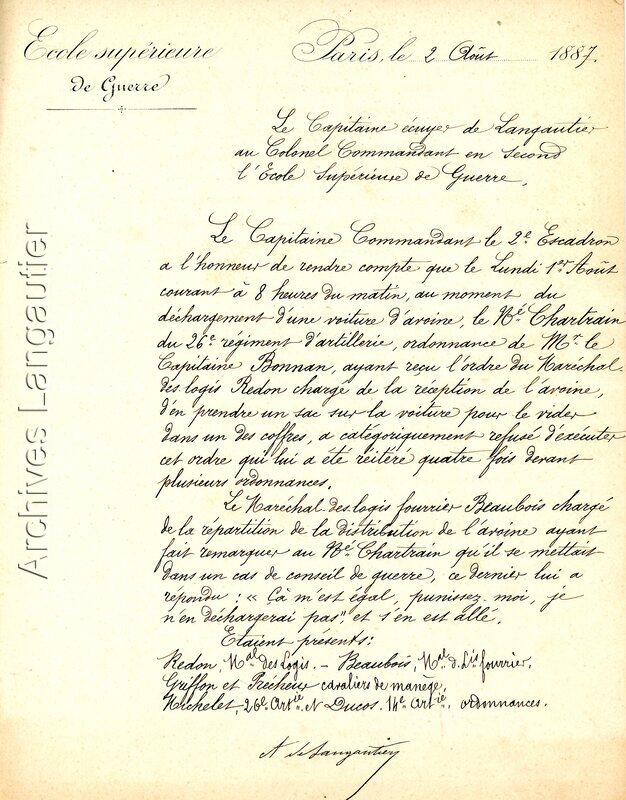 Ecole supérieure
de Guerre
Paris, le 2 Août 1887.
Le Capitaine écuyer de Langautier
au Colonel Commandant en Second
l'Ecole Supérieure de Guerre.
Le Capitaine Commandant le 2e Escadron
a l'honneur de rendre compte que le Lundi 1er Août
courant à 8 heures du matin, au moment du
déchargement d'une voiture d'avoine, le Né Chartrain
du 26e régiment d'artillerie, ordonnance de Mr le
Capitaine Bonnan, ayant reçu l'ordre du Maréchal
des logis Redon chargé de la réception de l'avoine,
d'en prendre un sac sur la voiture pour le vider
dans un des coffres, a catégoriquement refusé d'exécuter
cet ordre qui lui a été réitéré quatre fois devant
plusieurs ordonnances.
Le Maréchal des logis fourrier Beaubois chargé
de la répartition de la distribution de l'avoine ayant
fait remarquer au Né Chartrain qu'il se mettait
dans un cas de conseil de guerre, ce dernier lui a
répondu : « Çà m'est égal, punissez-moi, je
n'en déchargerai pas" et s'en est allé.
Etaient présents :
Redon, Mal des Logis. - Beaubois, Mal d. Lis fourrier.
Griffon et Pécheux cavaliers de manège.
Michelet, 26e Artie N Ducos. 14e Artie. ordonnances.
A de Langautier
Archives Langautier